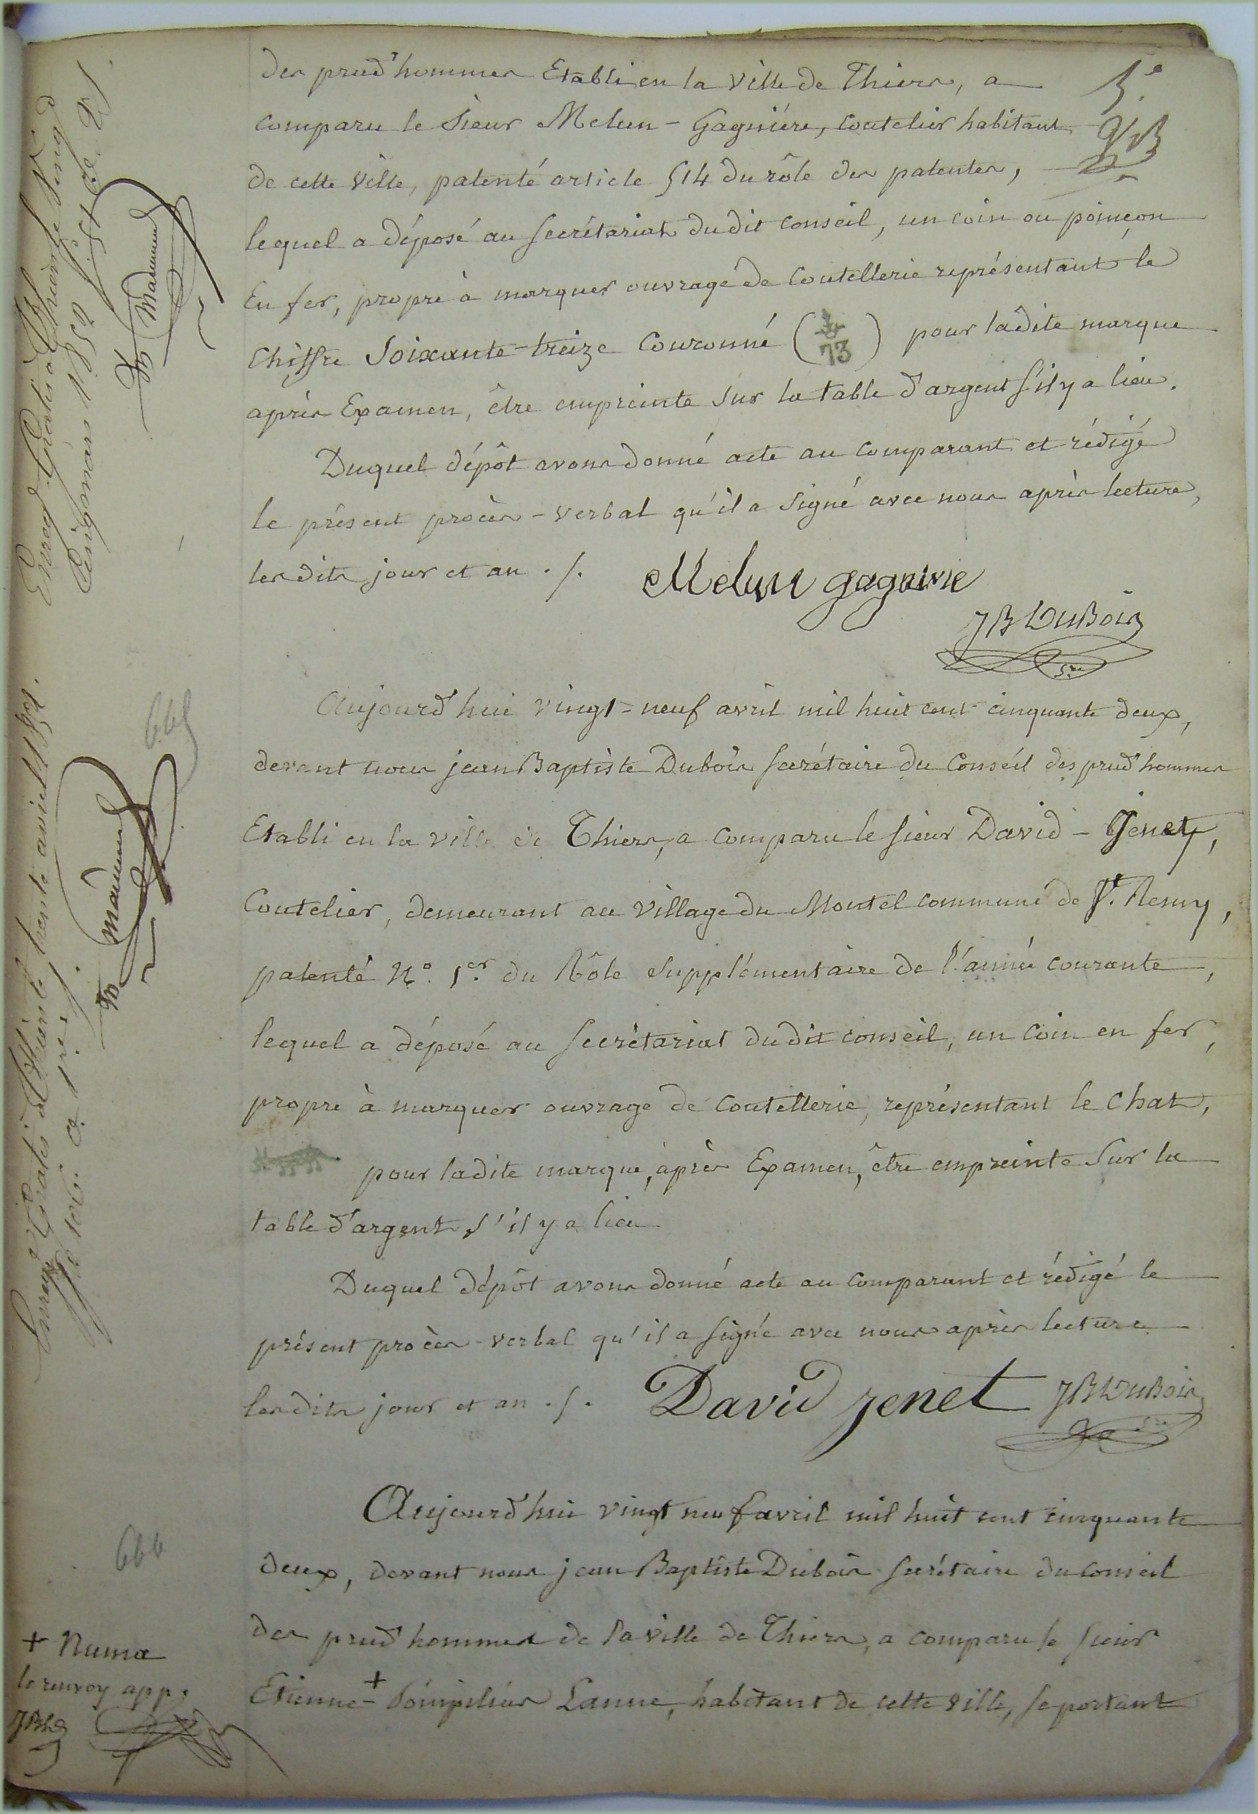 des prud'hommes Etabli en la ville de Thiers, a
comparu le sieur Melun-Gagnière, coutelier habitant
de cette ville, patenté article 514 du rôle des patentes,
lequel a déposé au secrétariat du dit conseil, un coin ou poinçon
En fer, propre à marquer ouvrage de coutellerie représentant le
Chiffre Soixante-treize Couronné (73) pour ladite marque
après Examen, être empreinte sur la table d'argent s'il y a lieu.
Duquel dépôt avons donné acte au comparant et rédigé
le présent procès-verbal qu'il a signé avec nous après lecture,
lesdits jour et an ./.
Melun gagnire
JB DuBois
Sre
Enreg. Gratis à Thiers le vingt
1852
Mad
665
Aujourd'hui vingt-neuf avril mil huit cent cinquante deux,
devant nous jean Baptiste Dubois secrétaire du Conseil des prud'hommes
Etabli en la ville de Thiers, a comparu le sieur David-Jenet,
Coutelier, demeurant au village du Montel commune de St. Remy,
patenté No. 1er. du Rôle supplémentaire de l'année courante,
lequel a déposé au secrétariat du dit conseil, un coin en fer,
propre à marquer ouvrage de coutellerie, représentant le Chat,
pour ladite marque, après Examen, être empreinte sur la
table d'argent, s'il y a lieu
Duquel dépôt avons donné acte au comparant et rédigé le
présent procès-verbal qu'il a signé avec nous après lecture
lesdits jour et an ./.
David jenet
JB DuBois
Sre
Enreg. Gratis à Thiers le trente avril 1852.
666
Aujourd'hui vingt neuf avril mil huit cent cinquante
deux, devant nous jean Baptiste Dubois secrétaire du conseil
des prud'hommes de la ville de Thiers, a comparu le sieur
Etienne + Pompilius Lanne, habitant de cette ville, se portant
+ Numa
le renvoy app.